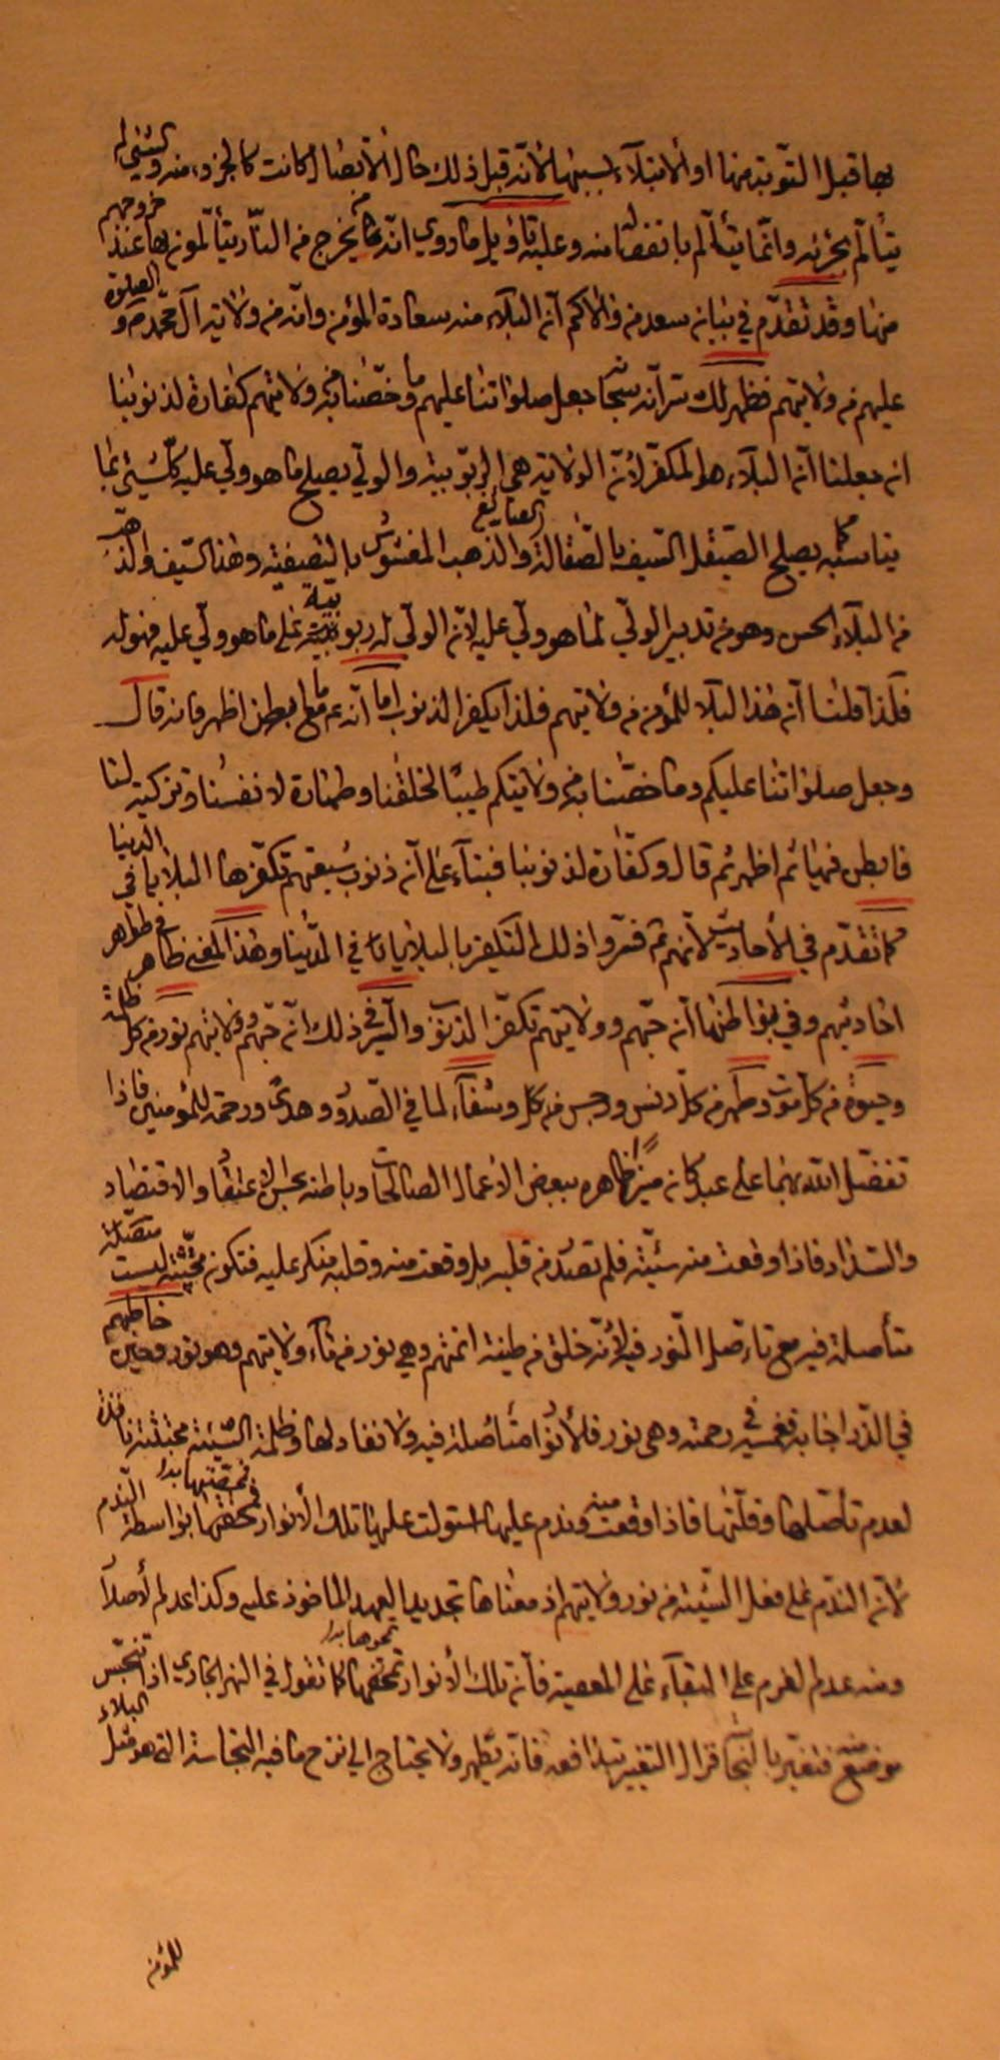 بها قبل التوبة منها او الابتلاء بسببها لانه قبل ذلك حال الاتصال كانت كالجزء منه والشئ لم
يتألم بجزئه وانما يتألم بانفصاله منه وعليه تأويل ما روي انه يخرج من النار يتألمون بها عند خروجهم
منها وقد تقدم في بيان سعد من والاكم ان البلاء من سعادة المؤمن وانه من ولاية آل محمد ص والصلوة
عليهم من ولايتهم فظهر لك سر انه سبحانه جعل صلواتنا عليهم وما خصنا به من ولايتهم كفارة لذنوبنا
ان جعلنا ان البلاء هو المكفر لان الولاية هي الربوبية والولي يصلح ما هو ولي عليه كل شئ بما
يناسبه كما يصلح الصيقل السيف بالصقالة والصايغ الذهب المغشوش بالتصفية وهذا السيف والذهب
من البلاء الحسن وهو من تدبير الولي لما هو ولي عليه لان الولي له ربوبية على ما هو ولي عليه فهو له
فلذا قلنا ان هذا البلاء للمؤمن من ولايتهم فلذا يكفر الذنوب اما انه ع ما ابطن اظهر فانه قال
وجعل صلواتنا عليكم وما خصنا به من ولايتكم طيبا لخلقنا وطهارة لانفسنا وتزكية لنا
فابطن فيها ثم اظهر ثم قال وكفارة لذنوبنا فبناء على ان ذنوب شيعتهم تكفرها البلايا في الدنيا
كما تقدم في الأحاديث لانهم ع فسروا ذلك التكفير بالبلايا في الدنيا وهذا المعنى ظاهر في ظواهر
احاديثهم وفي بواطنها ان حبهم وولايتهم تكفر الذنوب والسر في ذلك ان حبهم وولايتهم نور من كل ظلمة
وحيوة من كل موت وطهر من كل دنس ورجس من كل وشفاء لما في الصدور وهدى ورحمة للمؤمنين فاذا
تفضل الله بهما على عبد كان منيرا ظاهره ببعض الاعمال الصالحات وباطنه بحسن الاعتقاد والاقتصاد
والسداد فاذا وقعت منه سيئة فلم تصدر من قلبه بل وقعت منه وقلبه منكر عليه فتكون مجتثة ليست متصلة
متأصلة فيه مع تاصل النور فيه لانه خلق من طينة ائمتهم وهي نور من ماء ولايتهم وهو نور وحين خاطبهم
في الذر اجابه فغمسه في رحمته وهي نور فلأنوار متأصلة فيه ولا نفاد لها وظلمة السيئة مجتثة نافدة
لعدم تأصلها وقلتها فاذا وقعت منه وندم عليها استولت عليها تلك الأنوار فمحقتها بواسطة الندم
لان الندم على فعل السيئة من نور ولايتهم اذ معناها تجديد العهد الماخوذ عليه وكذا عدم الأصل
ومنه عدم العزم على البقاء على المعصية فان تلك الأنوار تمحقها كما نقول في النهر الجاري اذا تنجس
موضع منه فتغير بالنجاسة فزال التغير بتدافعه فانه يطهر ولا يحتاج الى نزح ما فيه النجاسة التي هو مثل البلاء
للمؤمن